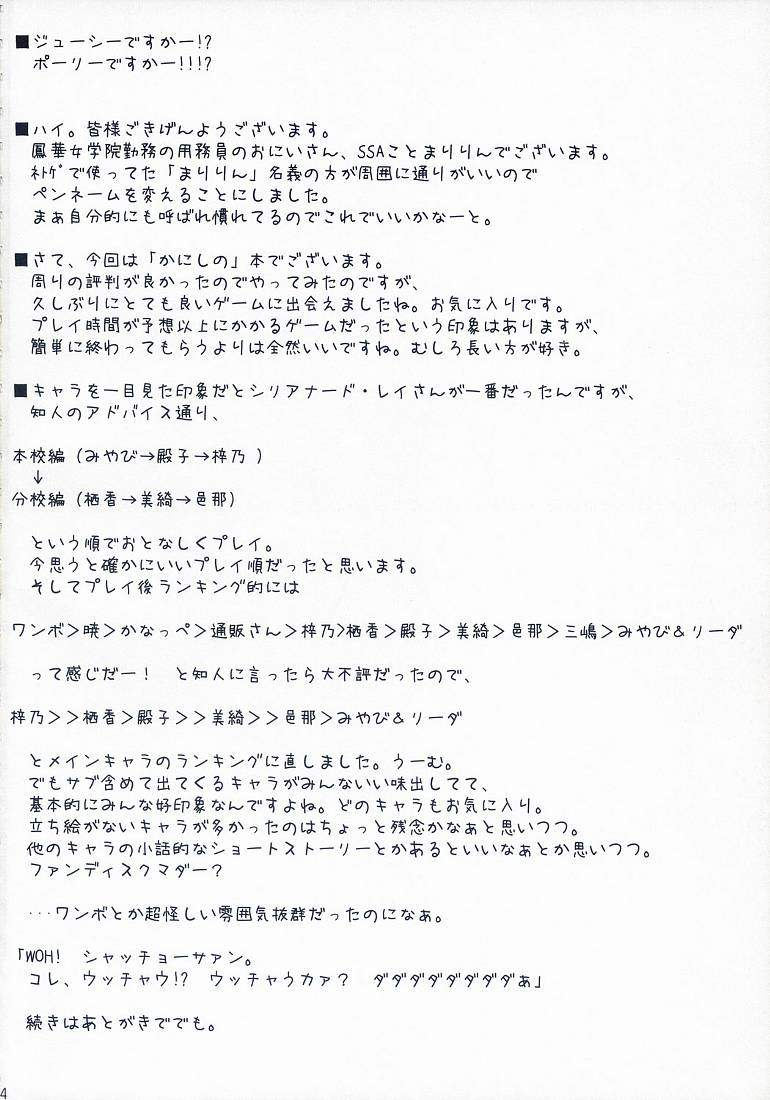 ■ジューシーですかー!?
ポーリーですかー!!!?
■ハイ。皆様ごきげんようございます。
鳳華女学院勤務の用務員のおにいさん、SSAことまりりんでございます。
ﾈﾄｹﾞで使ってた「まりりん」名義の方が周囲に通りがいいので
ペンネームを変えることにしました。
まぁ自分的にも呼ばれ慣れてるのでこれでいいかなーと。
■さて、今回は「かにしの」本でございます。
周りの評判が良かったのでやってみたのですが、
久しぶりにとても良いゲームに出会えましたね。お気に入りです。
プレイ時間が予想以上にかかるゲームだったという印象はありますが、
簡単に終わってもらうよりは全然いいですね。むしろ長い方が好き。
■キャラを一目見た印象だとシリアナード・レイさんが一番だったんですが、
知人のアドバイス通り、
本校編（みやび→殿子→梓乃 ）
↓
分校編（栖香→美綺→邑那）
という順でおとなしくプレイ。
今思うと確かにいいプレイ順だったと思います。
そしてプレイ後ランキング的には
ワンボ＞暁＞かなっぺ＞通販さん＞梓乃>栖香＞殿子＞美綺＞邑那＞三嶋＞みやび＆リーダ
って感じだー！　と知人に言ったら大不評だったので、
梓乃＞＞栖香＞殿子＞＞美綺＞＞邑那＞みやび＆リーダ
とメインキャラのランキングに直しました。うーむ。
でもサブ含めて出てくるキャラがみんないい味出してて、
基本的にみんな好印象なんですよね。どのキャラもお気に入り。
立ち絵がないキャラが多かったのはちょっと残念かなぁと思いつつ。
他のキャラの小話的なショートストーリーとかあるといいなぁとか思いつつ。
ファンディスクマダー？
･･･ワンボとか超怪しい雰囲気抜群だったのになぁ。
「WOH!　シャッチョーサァン。
コレ、ウッチャウ!?　ウッチャうカァ？　ダダダダダダダダぁ」
続きはあとがきででも。
4